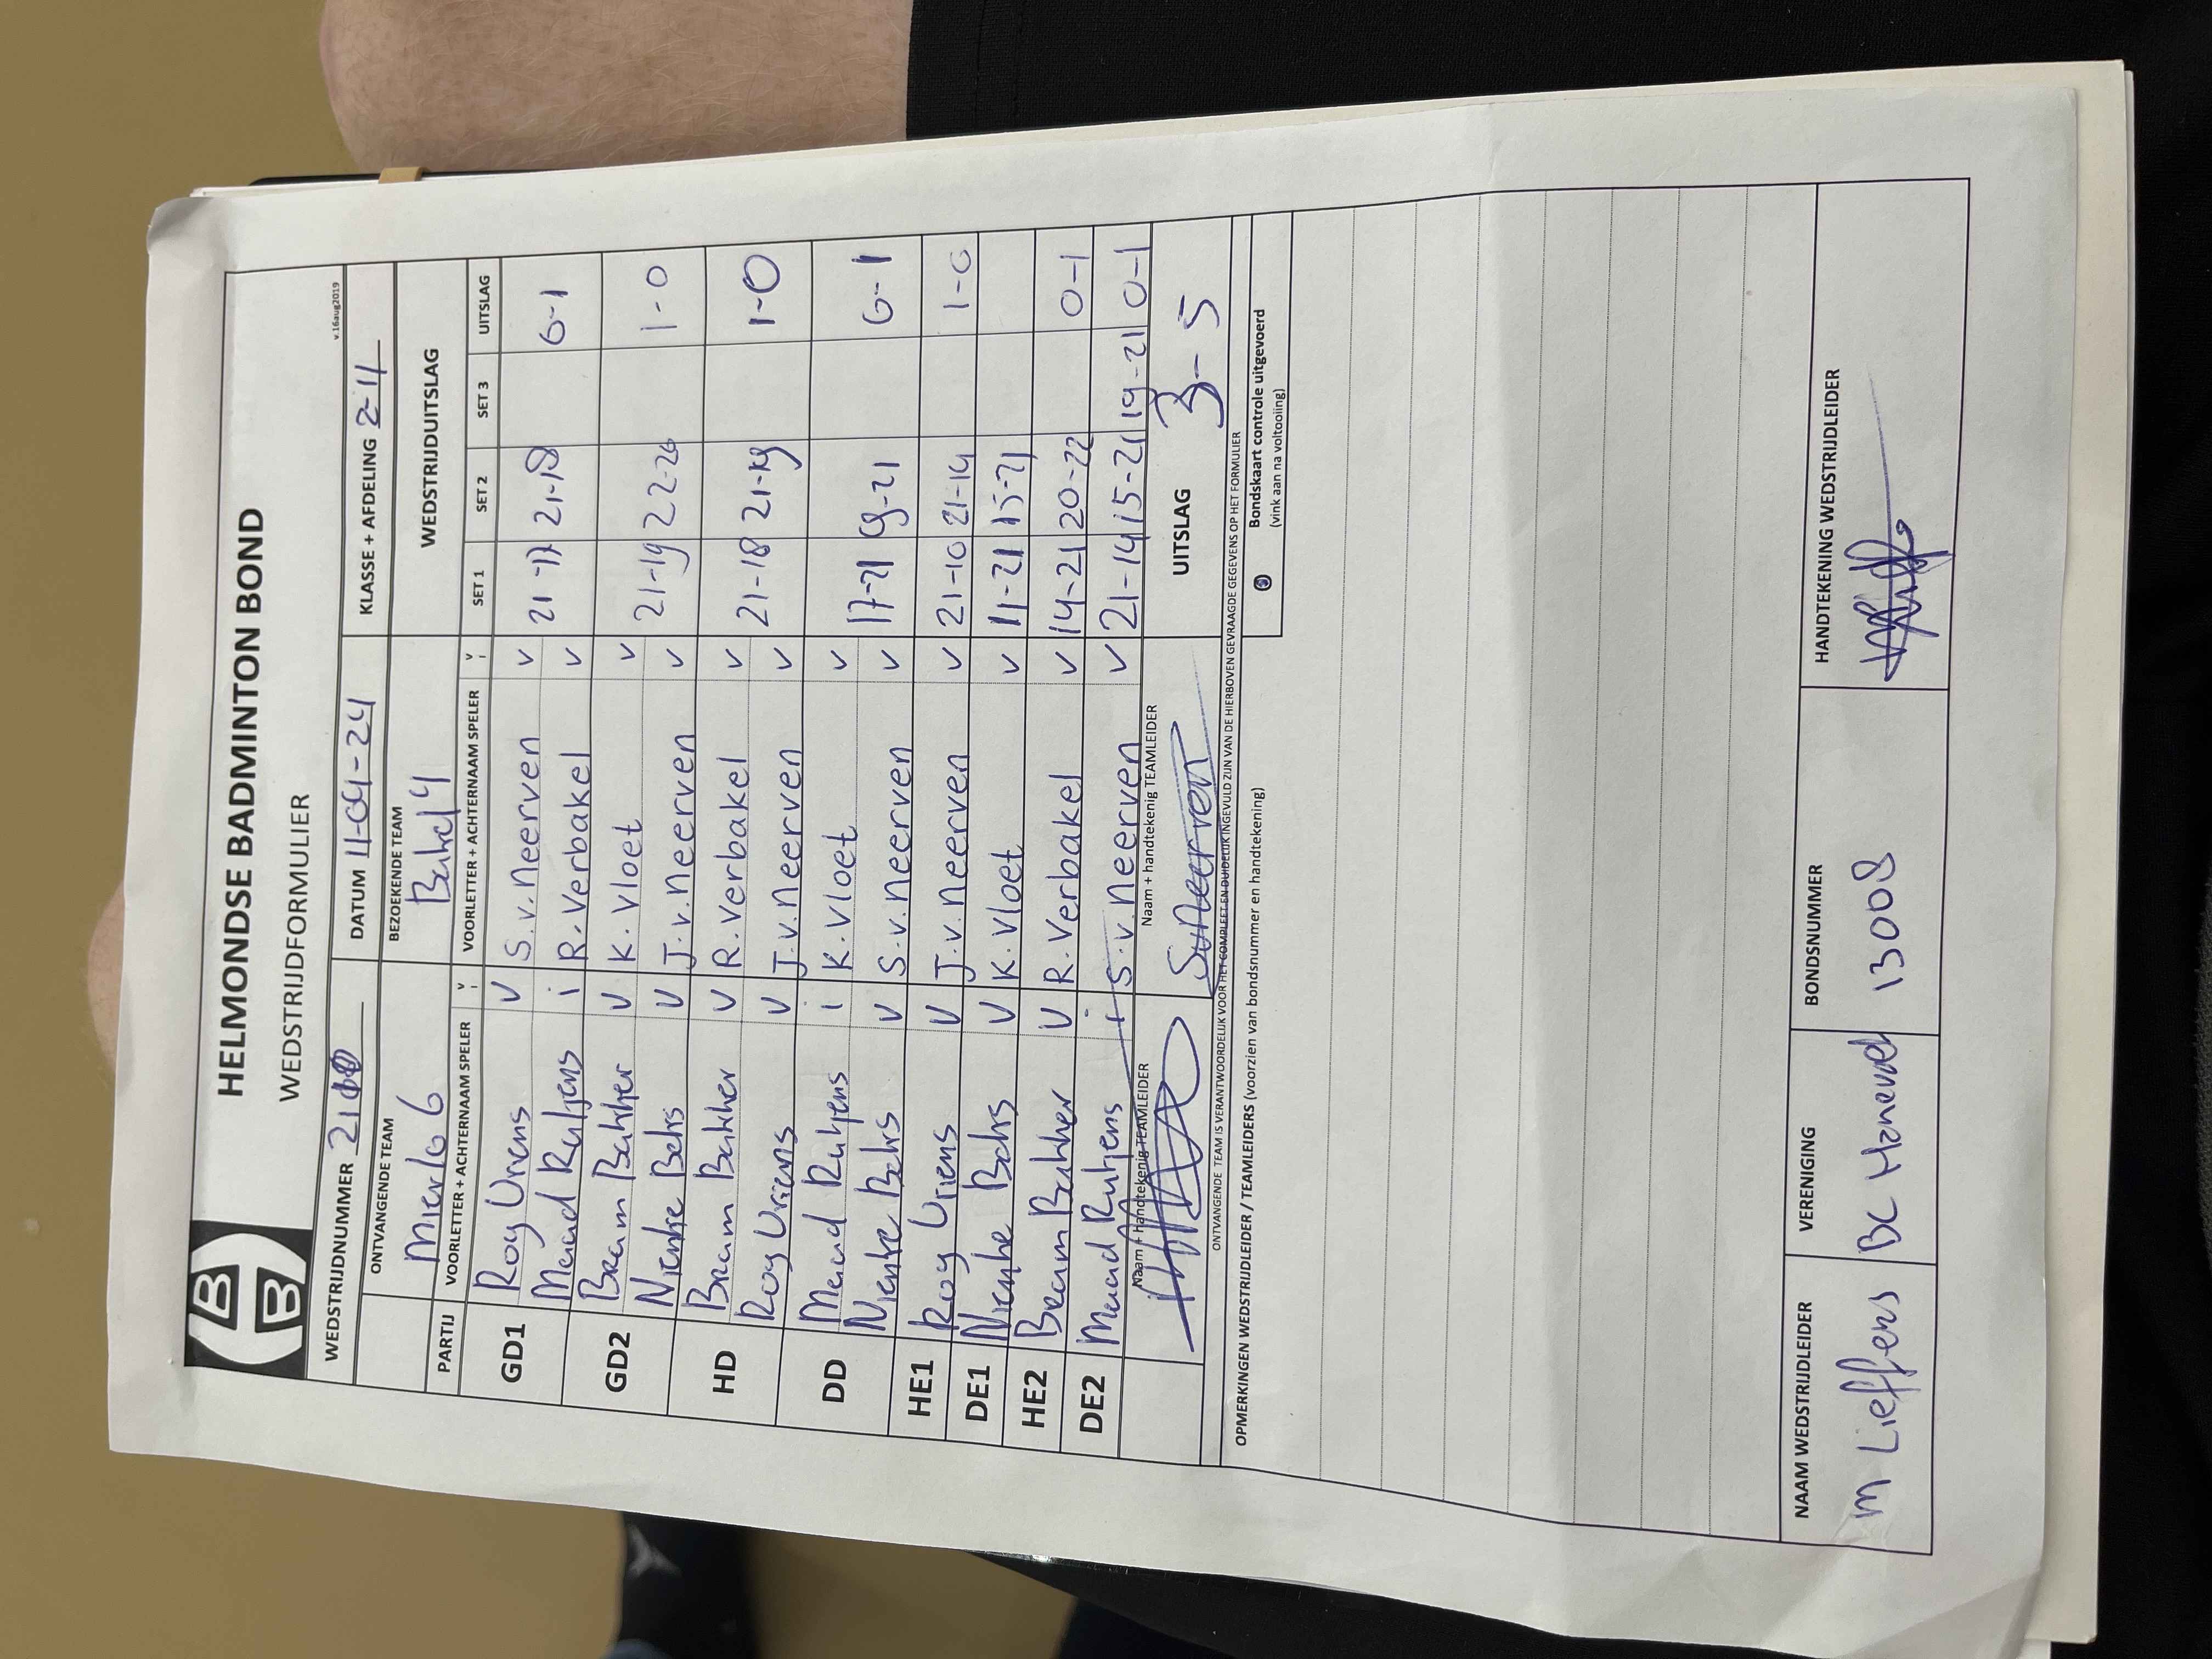 HELMONDSE BADMINTON BOND
WEDSTRIJDFORMULIER
v.16aug2019
WEDSTRIJDNUMMER DATUM 11-04-24 KLASSE + AFDELING 2-11
ONTVANGENDE TEAM BEZOEKENDE TEAM WEDSTRIJDUITSLAG
Mierlo 6 Bakel 4
PARTIJ VOORLETTER + ACHTERNAAM SPELER V i VOORLETTER + ACHTERNAAM SPELER V i SET 1 SET 2 SET 3 UITSLAG
GD1 Roy Vriens V S.v.Neerven v 21-17 21-18 0-1
Maud Rutjens i R.Verbakel v
GD2 Bram Bakker V K.Vloet v 21-19 22-20 1-0
Nienke Bahrs V J.v.Neerven v
HD Bram Bakker V R.Verbakel v 21-18 21-19 1-0
Roy Vriens V J.v.Neerven v
DD Maud Rutjens i K.Vloet v 17-21 19-21 0-1
Nienke Bahrs V S.v.Neerven v
HE1 Roy Vriens V J.v.Neerven v 21-10 21-14 1-0
DE1 Nienke Bahrs V K.Vloet v 11-21 15-21
HE2 Bram Bakker V R.Verbakel v 14-21 20-22 0-1
DE2 Maud Rutjens i S.v.Neerven v 21-14 15-21 19-21 0-1
Naam + handtekenig TEAMLEIDER Naam + handtekenig TEAMLEIDER UITSLAG 3-5
SvNeerven
ONTVANGENDE TEAM IS VERANTWOORDELIJK VOOR HET COMPLEET EN DUIDELIJK INGEVULD ZIJN VAN DE HIERBOVEN GEVRAAGDE GEGEVENS OP HET FORMULIER
OPMERKINGEN WEDSTRIJDLEIDER / TEAMLEIDERS (voorzien van bondsnummer en handtekening)
Bondskaart controle uitgevoerd
(vink aan na voltooiing)
NAAM WEDSTRIJDLEIDER VERENIGING BONDSNUMMER HANDTEKENING WEDSTRIJDLEIDER
M Lieffers BC 13008